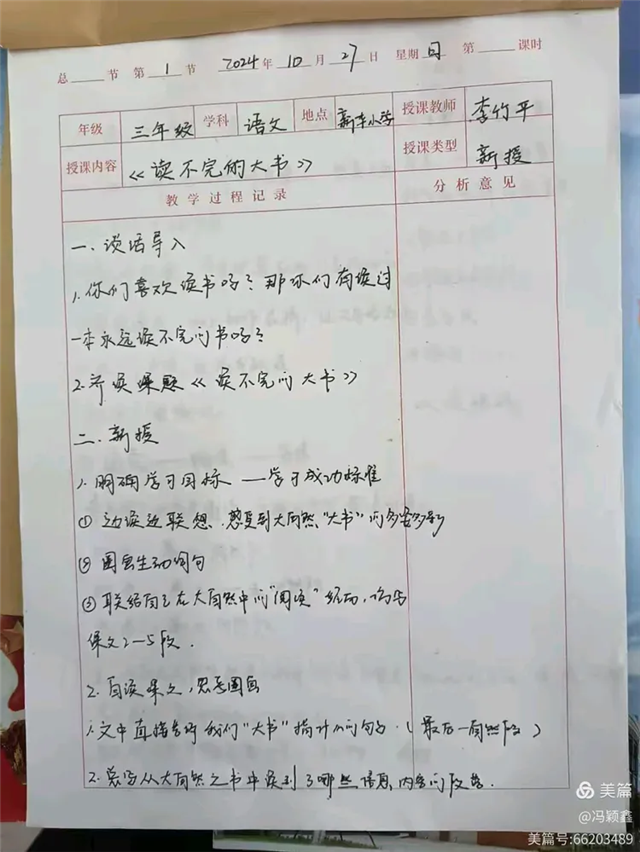 总 节 第 1 节 2024年 10 月 27 日 星期 日 第 课时
年级 三年级 学科 语文 地点 新丰小学 授课教师 李竹平
授课内容 《读不完的大书》 授课类型 新授
教学过程记录 分析意见
一、谈话导入
1.你们喜欢读书吗？那你们有读过
一本永远读不完的书吗？
2.齐读课题《读不完的大书》
二、新授
1.明确学习目标——学习成功标准
① 边读边联想，感受到大自然"大书"的多姿多彩
② 圈画生动词句
③ 联结自己在大自然中的"阅读"经历，
课文2—5段.
2.自读课文，思考圈画
1.文中直接告诉我们"大书"指什么的句子.（最后一自然段）
2.从大自然之书中读到了哪些信息,内容的段落.
美篇
@冯颖鑫
美篇号:66203489